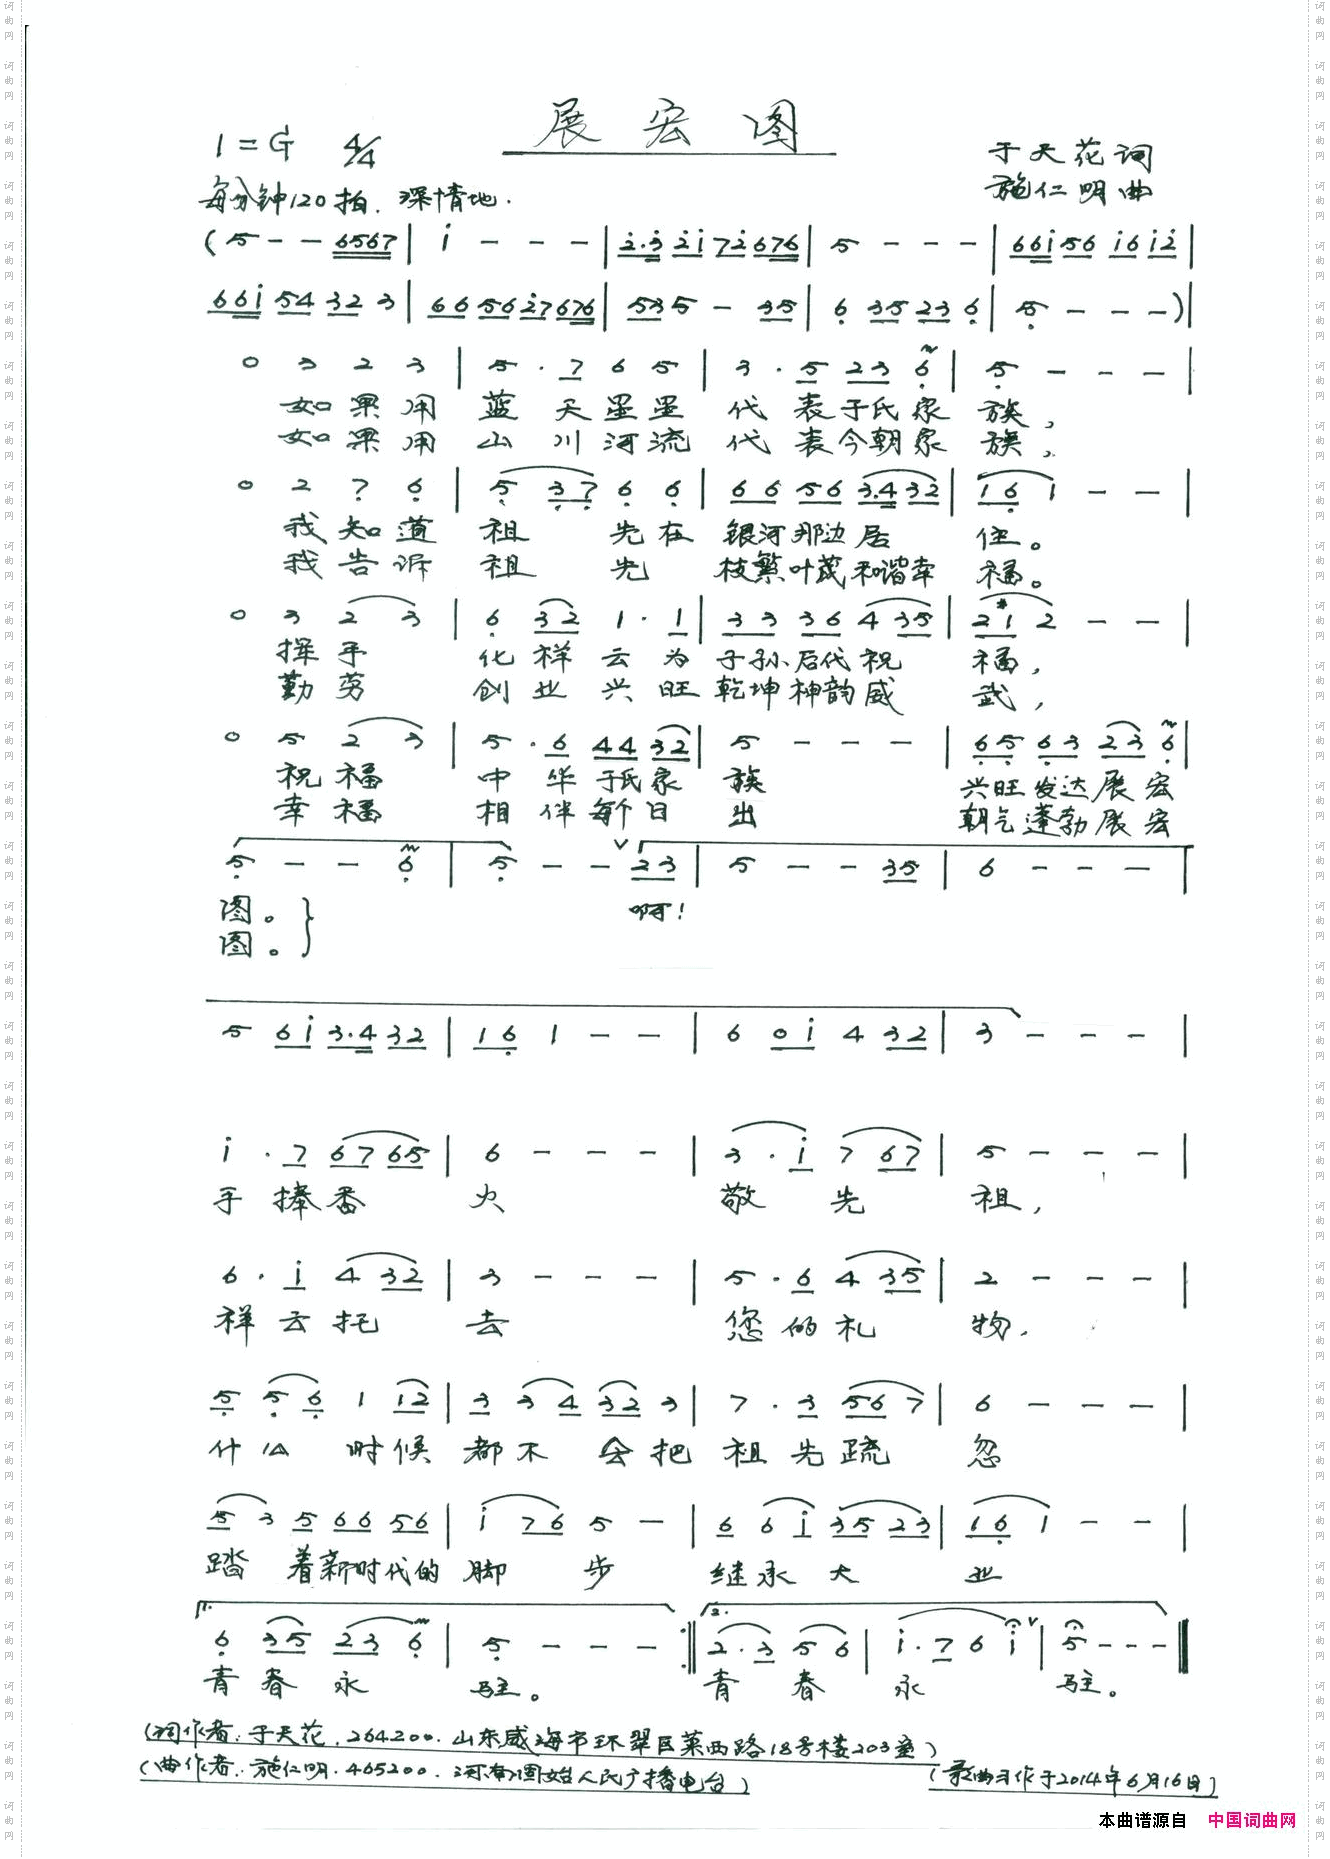 展宏图
1=G 4/4
于天花词
施仁明曲
每分钟120拍.深情地.
(5 - - 6567 | i - - - | 2·3 2i 72 676 | 5 - - - | 66i 56 i6 i2 |
66i 54 32 3 | 66 56 27 676 | 53 5 - 35 | 6 35 23 6 | 5 - - - )|
0 3 2 3 | 5 · 7 6 5 | 3 · 5 23 6 | 5 - - - |
如果用 蓝天星星 代表于氏家族,
如果用 山川河流 代表今朝家族,
0 2 7 6 | 5 37 6 6 | 66 56 3·4 32 | 16 1 - - |
我知道 祖先在 银河那边居住。
我告诉 祖先 枝繁叶茂和谐幸福。
0 3 2 3 | 6 32 1 · 1 | 33 36 4 35 | 21 2 - - |
挥手 化祥云为 子孙后代祝福,
勤劳 创业兴旺 乾坤神韵威武,
0 5 2 3 | 5 · 6 44 32 | 5 - - - | 65 63 23 6 |
祝福 中华于氏家族 兴旺发达展宏
幸福 相伴每个日出 朝气蓬勃展宏
5 - - 6 | 5 - - 23 | 5 - - 35 | 6 - - - |
图。} 啊!
图。
5 6i 3·4 32 | 16 1 - - | 6 0i 4 32 | 3 - - - |
i · 7 67 65 | 6 - - - | 3 · i 7 67 | 5 - - - |
手捧香火 敬先祖,
6 · i 4 32 | 3 - - - | 5 · 6 4 35 | 2 - - - |
祥云托去 您的礼物.
5 5 6 1 12 | 3 3 4 32 3 | 7 · 3 56 7 | 6 - - - |
什么时候 都不会把 祖先疏忽
5 3 5 66 56 | i 76 5 - | 6 6 i 35 23 | 16 1 - - |
踏着新时代的 脚步 继承大业
1. 6 35 23 6 | 5 - - - :‖ 2. 2·3 5 6 | i · 7 6 i | 5 - - - ‖
青春永驻。 青春永驻。
(词作者:于天花.264200.山东威海市环翠区莱西路18号楼203室)
(曲作者:施仁明.465200.河南固始人民广播电台)
(歌曲习作于2014年6月16日)
本曲谱源自 中国词曲网